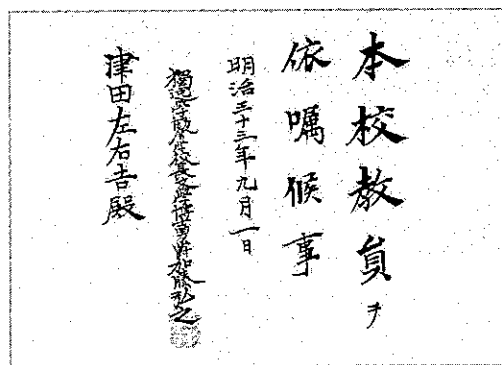 本校教員ヲ
依嘱候事
明治三十三年九月一日
獨逸學協會校長文學博士男爵加藤弘之
津田左右吉殿